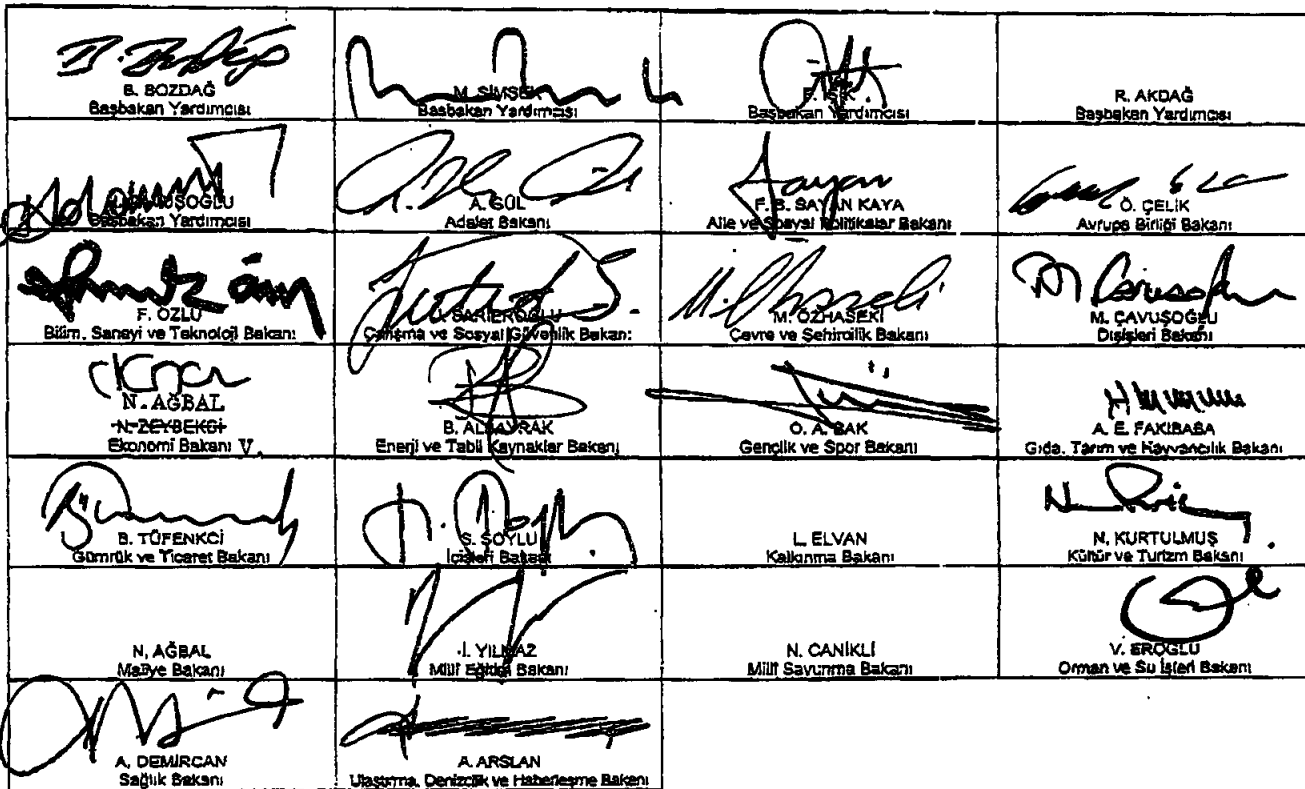 B. BOZDAĞ
Başbakan Yardımcısı
M. ŞİMŞEK
Başbakan Yardımcısı
F. IŞIK
Başbakan Yardımcısı
R. AKDAĞ
Başbakan Yardımcısı
H. ÇAVUŞOĞLU
Başbakan Yardımcısı
A. GÜL
Adalet Bakanı
F. B. SAYAN KAYA
Aile ve Sosyal Politikalar Bakanı
Ö. ÇELİK
Avrupa Birliği Bakanı
F. ÖZLÜ
Bilim, Sanayi ve Teknoloji Bakanı
J. SARIEROĞLU
Çalışma ve Sosyal Güvenlik Bakanı
M. ÖZHASEKİ
Çevre ve Şehircilik Bakanı
M. ÇAVUŞOĞLU
Dışişleri Bakanı
N. AĞBAL
N. ZEYBEKCİ
Ekonomi Bakanı V.
B. ALBAYRAK
Enerji ve Tabii Kaynaklar Bakanı
O. A. BAK
Gençlik ve Spor Bakanı
A. E. FAKIBABA
Gıda, Tarım ve Hayvancılık Bakanı
B. TÜFENKCİ
Gümrük ve Ticaret Bakanı
S. SOYLU
İçişleri Bakanı
L. ELVAN
Kalkınma Bakanı
N. KURTULMUŞ
Kültür ve Turizm Bakanı
N. AĞBAL
Maliye Bakanı
İ. YILMAZ
Millî Eğitim Bakanı
N. CANİKLİ
Millî Savunma Bakanı
V. EROĞLU
Orman ve Su İşleri Bakanı
A. DEMİRCAN
Sağlık Bakanı
A. ARSLAN
Ulaştırma, Denizcilik ve Haberleşme Bakanı